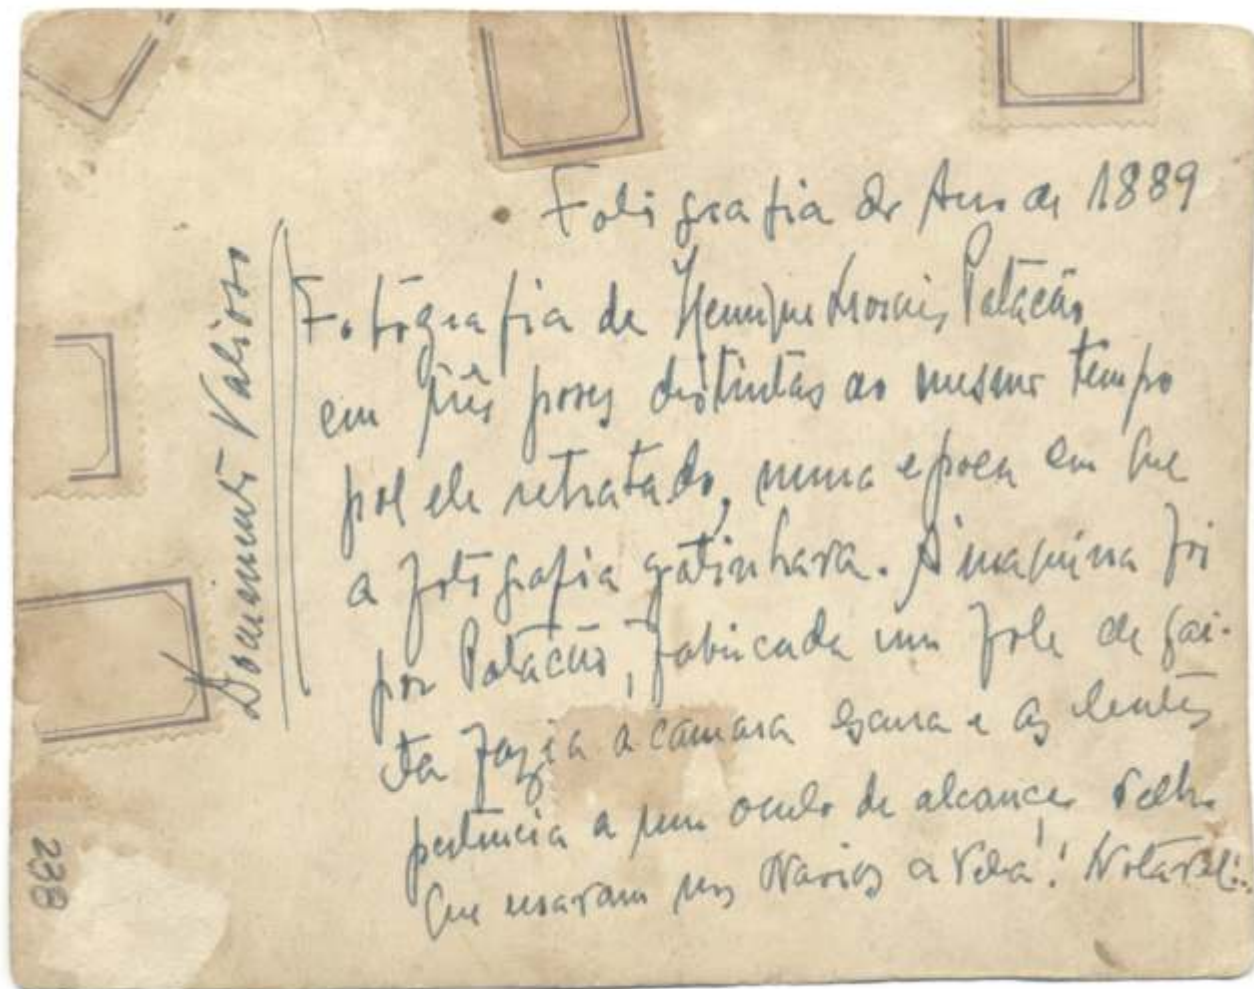 Fotografia do Ano de 1889
Documento Valioso
Fotografia de Henrique Morais Patacão
em três poses distintas ao mesmo tempo
por ele retratado, numa epoca em que
a fotografia gatinhava. A maquina foi
por Patacão, fabricada um fole de gai-
ta fazia a camara escura e as lentes
pertencia a um oculo de alcance velho
que usavam nos Navios a Vela! Notavel!..
238